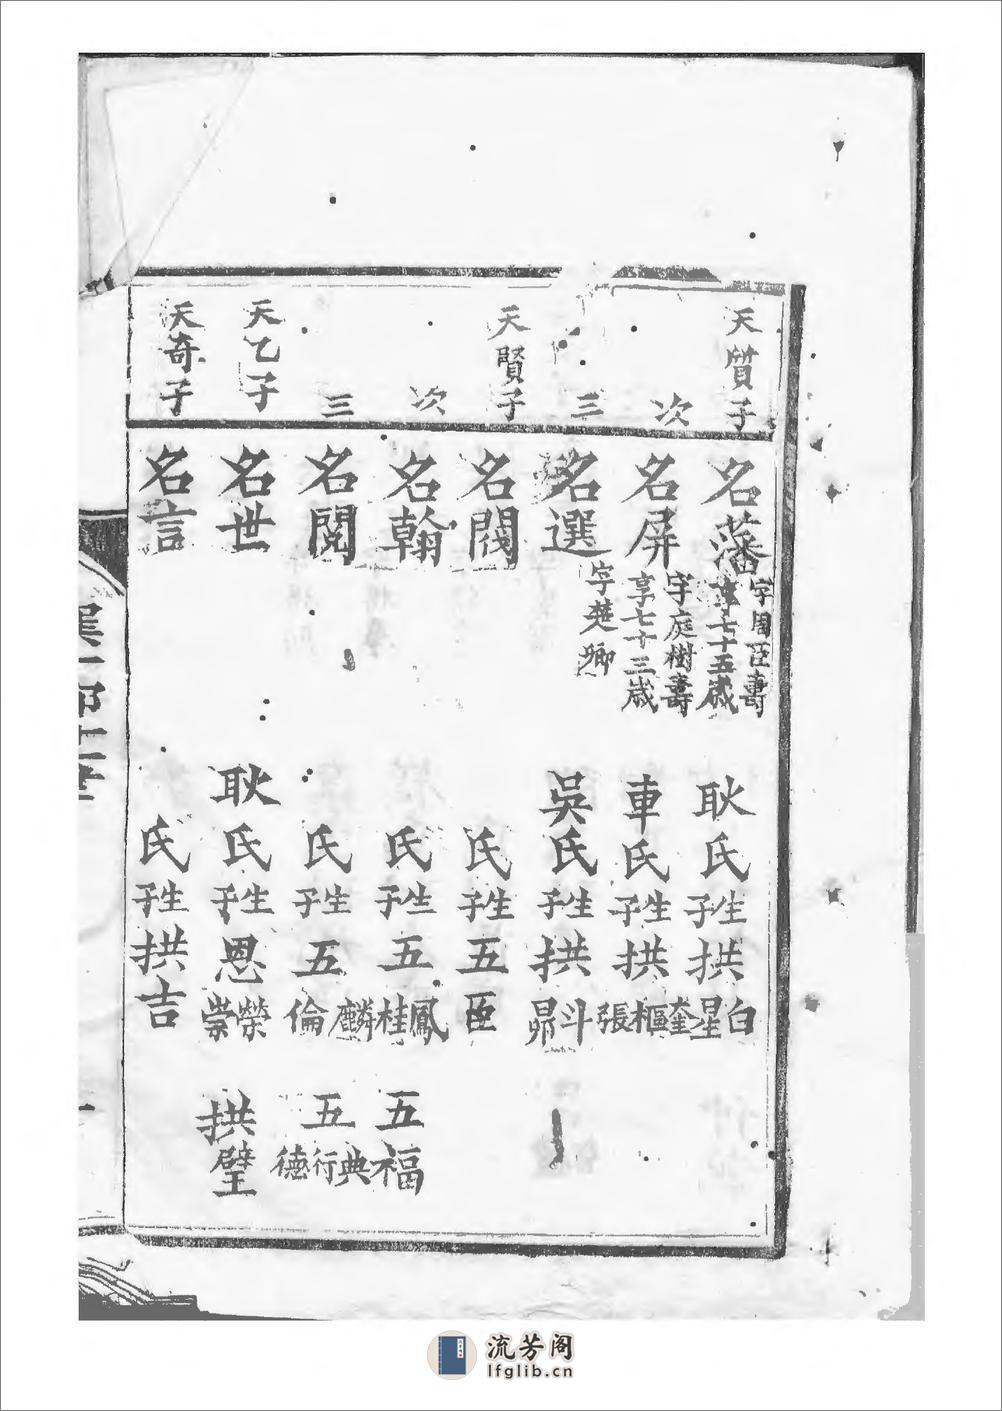 天質子 名藩 字周臣壽享七十五歲 耿氏 生子 拱白星
次 名屏 字庭樹壽享七十三歲 車氏 生子 拱奎樞張
三 名選 字楚卿 吳氏 生子 拱斗昴
天賢子 名閥 氏 生子 五臣
次 名翰 氏 生子 五鳳桂 五福
三 名閱 氏 生子 五麟倫 五典行德
天乙子 名世 耿氏 生子 恩榮崇 拱璧
天奇子 名言 氏 生子 拱吉
流芳阁
lfglib.cn